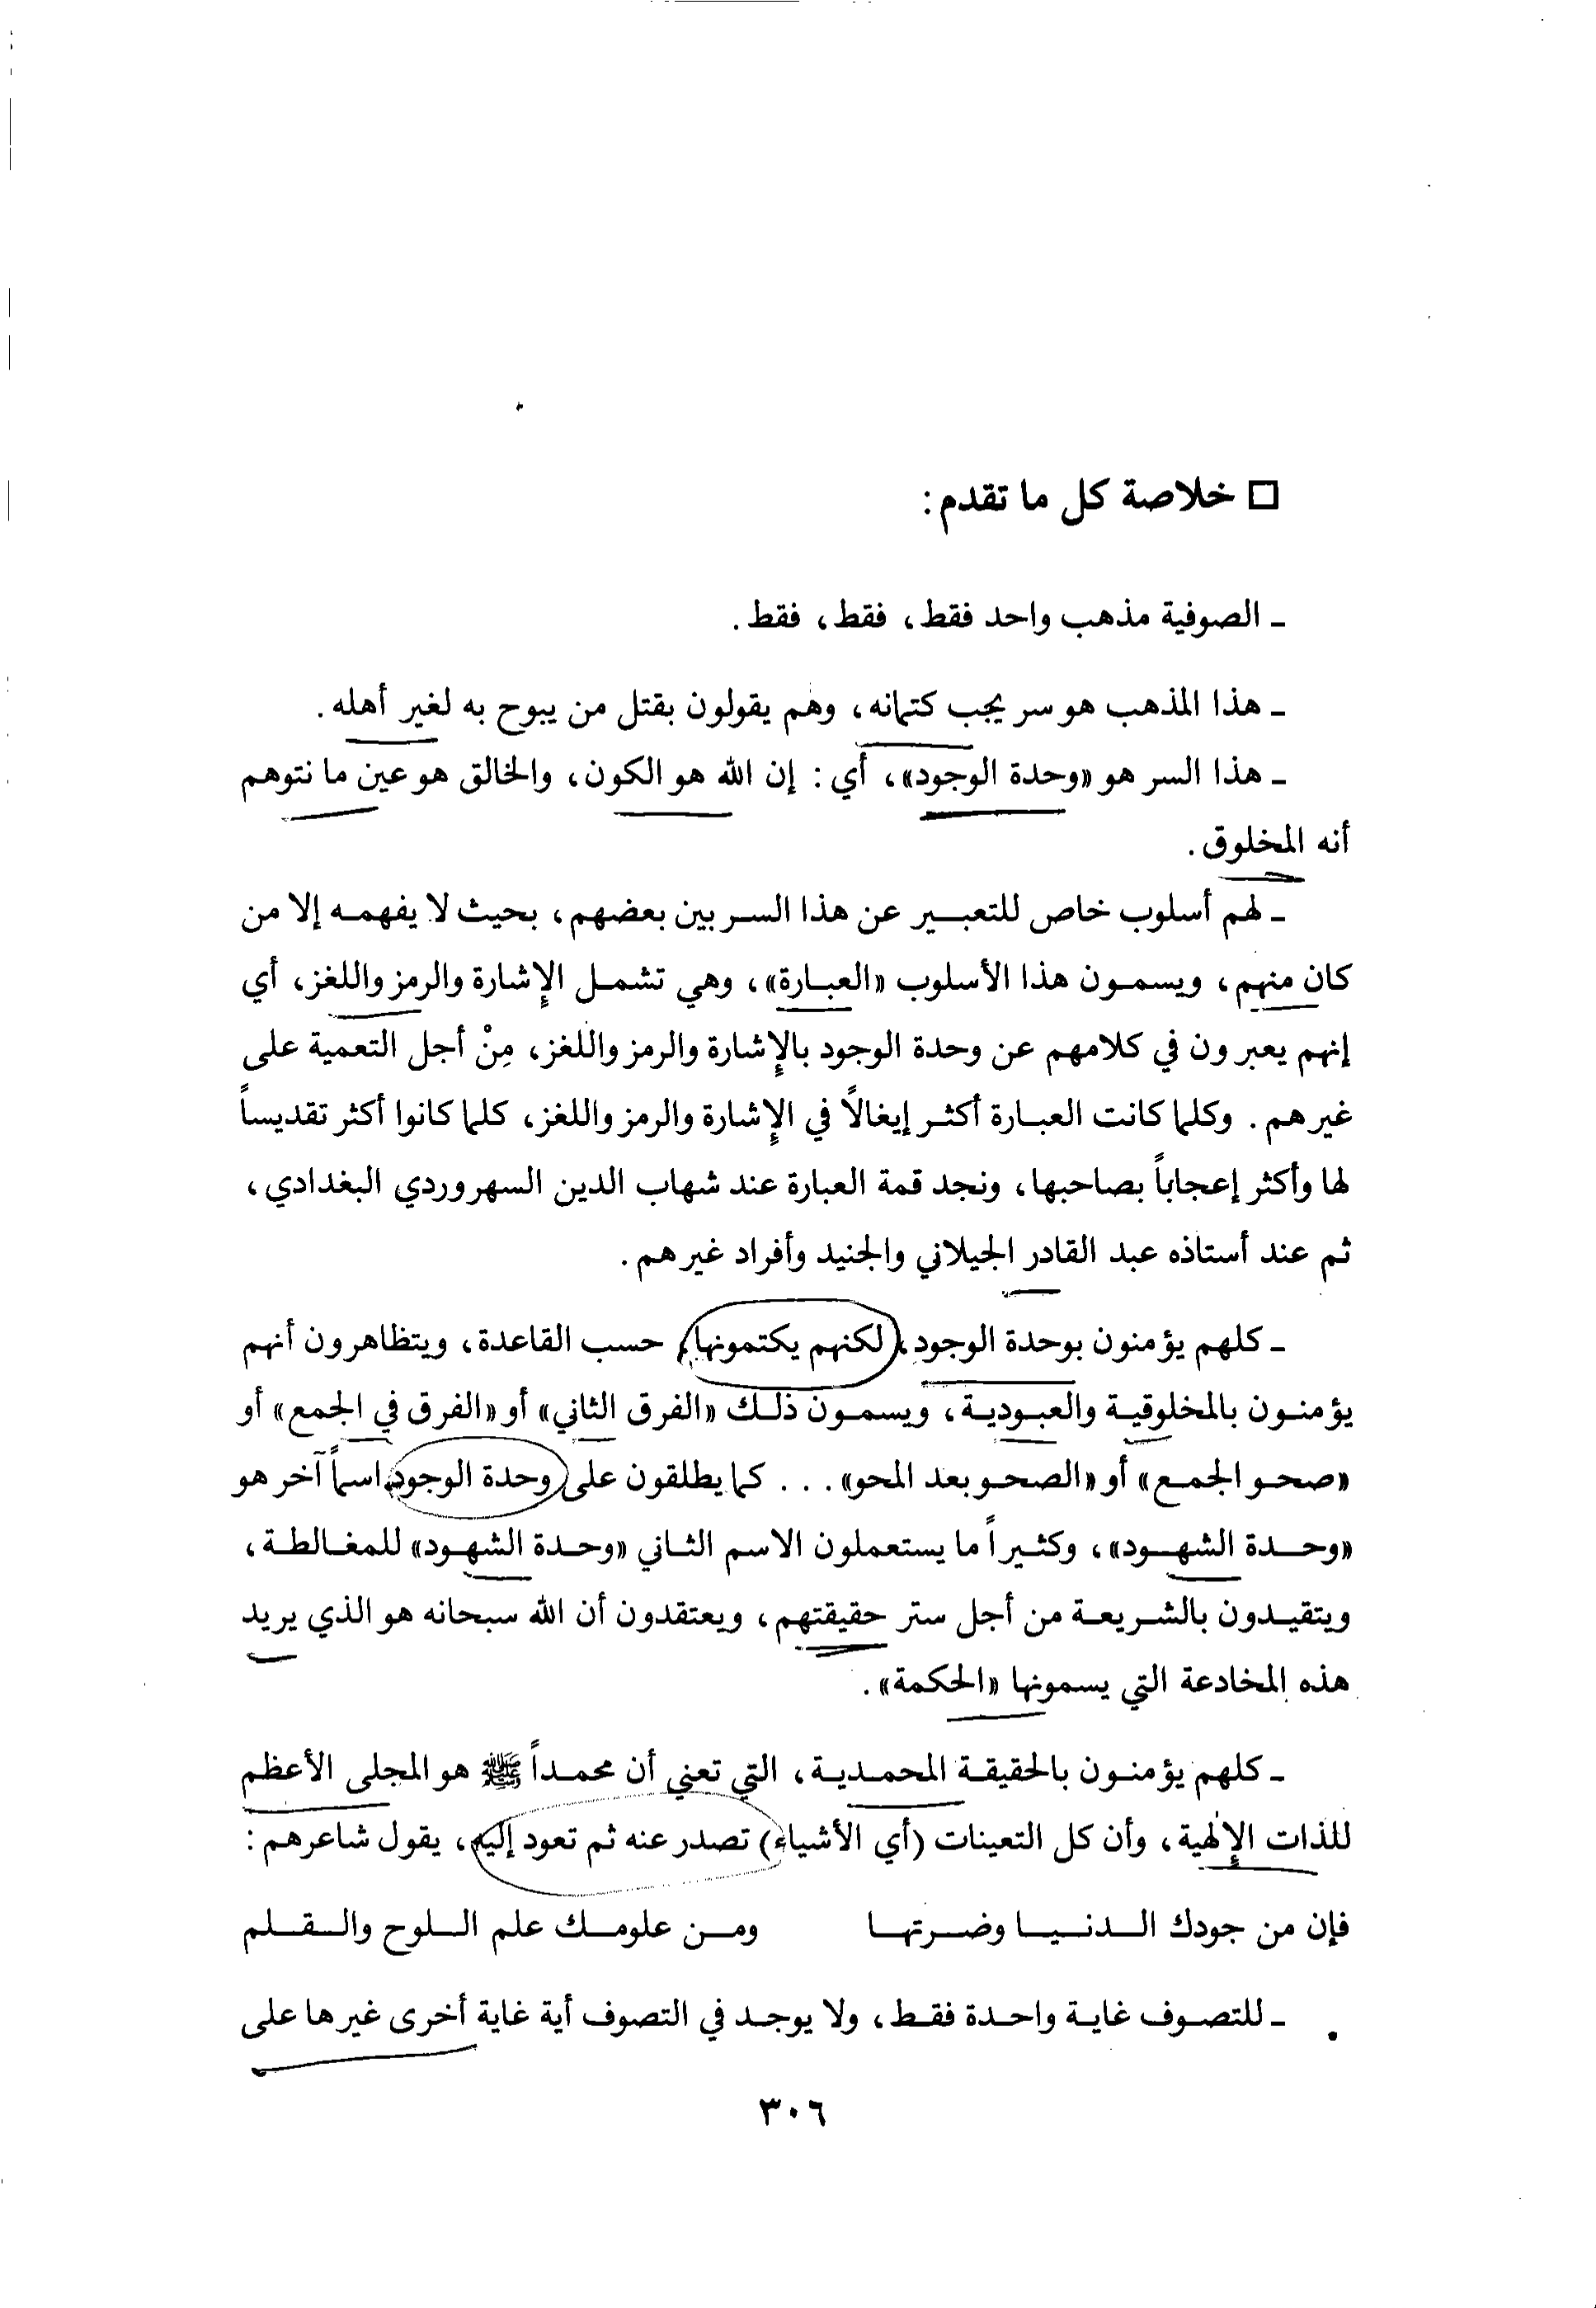 □ خلاصة كل ما تقدم:
ـ الصوفية مذهب واحد فقط، فقط، فقط.
ـ هذا المذهب هو سر يجب كتمانه، وهم يقولون بقتل من يبوح به لغير أهله.
ـ هذا السر هو «وحدة الوجود»، أي: إن الله هو الكون، والخالق هو عين ما نتوهم
أنه المخلوق.
ـ لهم أسلوب خاص للتعبير عن هذا السر بين بعضهم، بحيث لا يفهمه إلا من
كان منهم، ويسمون هذا الأسلوب «العبارة»، وهي تشمل الإشارة والرمز واللغز، أي
إنهم يعبرون في كلامهم عن وحدة الوجود بالإشارة والرمز واللغز، مِنْ أجل التعمية على
غيرهم. وكلما كانت العبارة أكثر إيغالاً في الإشارة والرمز واللغز، كلما كانوا أكثر تقديساً
لها وأكثر إعجاباً بصاحبها، ونجد قمة العبارة عند شهاب الدين السهروردي البغدادي،
ثم عند أستاذه عبد القادر الجيلاني والجنيد وأفراد غيرهم.
ـ كلهم يؤمنون بوحدة الوجود، لكنهم يكتمونها، حسب القاعدة، ويتظاهرون أنهم
يؤمنون بالمخلوقية والعبودية، ويسمون ذلك «الفرق الثاني» أو «الفرق في الجمع» أو
«صحو الجمع» أو «الصحو بعد المحو»... كما يطلقون على وحدة الوجود اسماً آخر هو
«وحدة الشهود»، وكثيراً ما يستعملون الاسم الثاني «وحدة الشهود» للمغالطة،
ويتقيدون بالشريعة من أجل ستر حقيقتهم، ويعتقدون أن الله سبحانه هو الذي يريد
هذه المخادعة التي يسمونها «الحكمة».
ـ كلهم يؤمنون بالحقيقة المحمدية، التي تعني أن محمداً ﷺ هو المجلى الأعظم
للذات الإلٰهية، وأن كل التعينات (أي الأشياء) تصدر عنه ثم تعود إليه، يقول شاعرهم:
فإن من جودك الدنيا وضرتها ومن علومك علم اللوح والقلم
ـ للتصوف غاية واحدة فقط، ولا يوجد في التصوف أية غاية أخرى غيرها على
٣٠٦